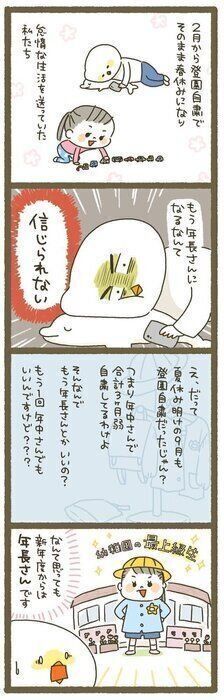 2月から登園自粛で
そのまま春休みになり
怠惰な生活を送っていた
私たち
もう年長さんに
なるなんて
信じられない
え、だって
夏休み明けの9月も
登園自粛だったじゃん？
つまり年中さんで
合計3ヶ月弱
自粛してるわけよ
そんなんで
もう年長さんとかいいの？
もう1回年中さんでも
いいんですけど？？？
幼稚園の最上級生
なんて思っても
新年度からは
年長さんです